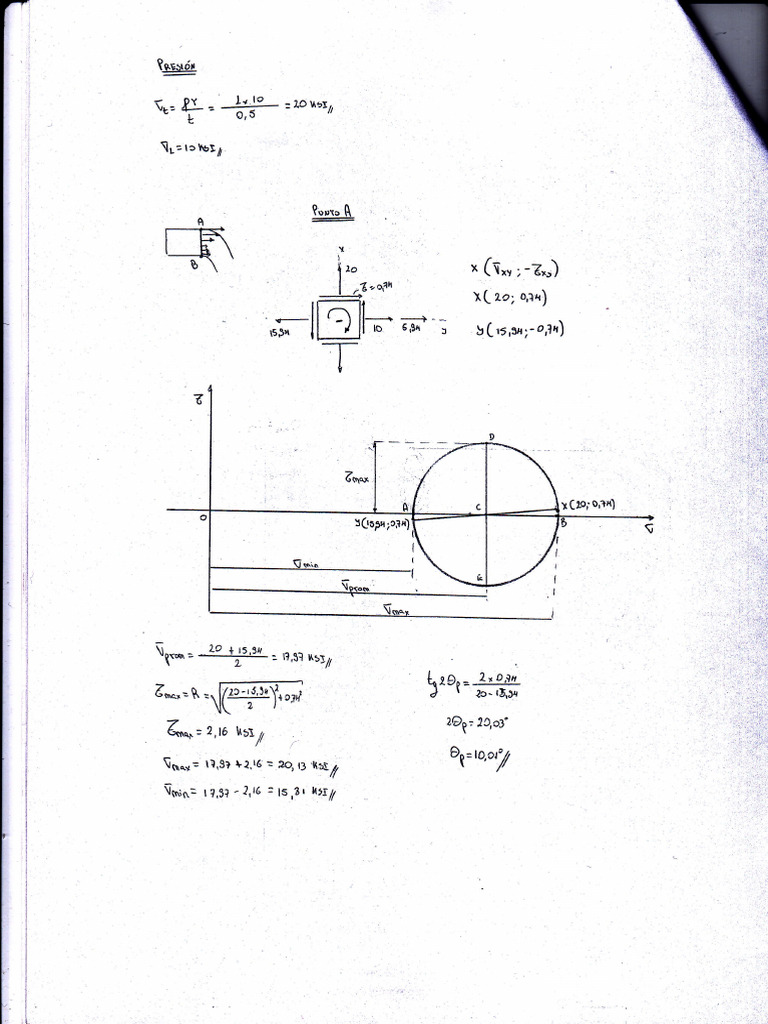 PRESIÓN
σt = pr/t = 1x10/0,5 = 20 KSI//
σL = 10 KSI//
PUNTO A
A
B
x
20
τ = 0,74
15,94
10
5,94
y
X (σxy ; -τxy)
X (20; 0,74)
Y (15,94; -0,74)
τ
D
τmax
A
C
X (20; 0,74)
O
Y (15,94; 0,74)
B
σ
σmin
E
σprom
σmax
σprom = (20 + 15,94)/2 = 17,97 KSI//
τmax = R = √(((20-15,94)/2)² + 0,74²)
τmax = 2,16 KSI//
σmax = 17,97 + 2,16 = 20,13 KSI//
σmin = 17,97 - 2,16 = 15,81 KSI//
tg 2θp = (2 x 0,74)/(20 - 15,94)
2θp = 20,03°
θp = 10,01°//